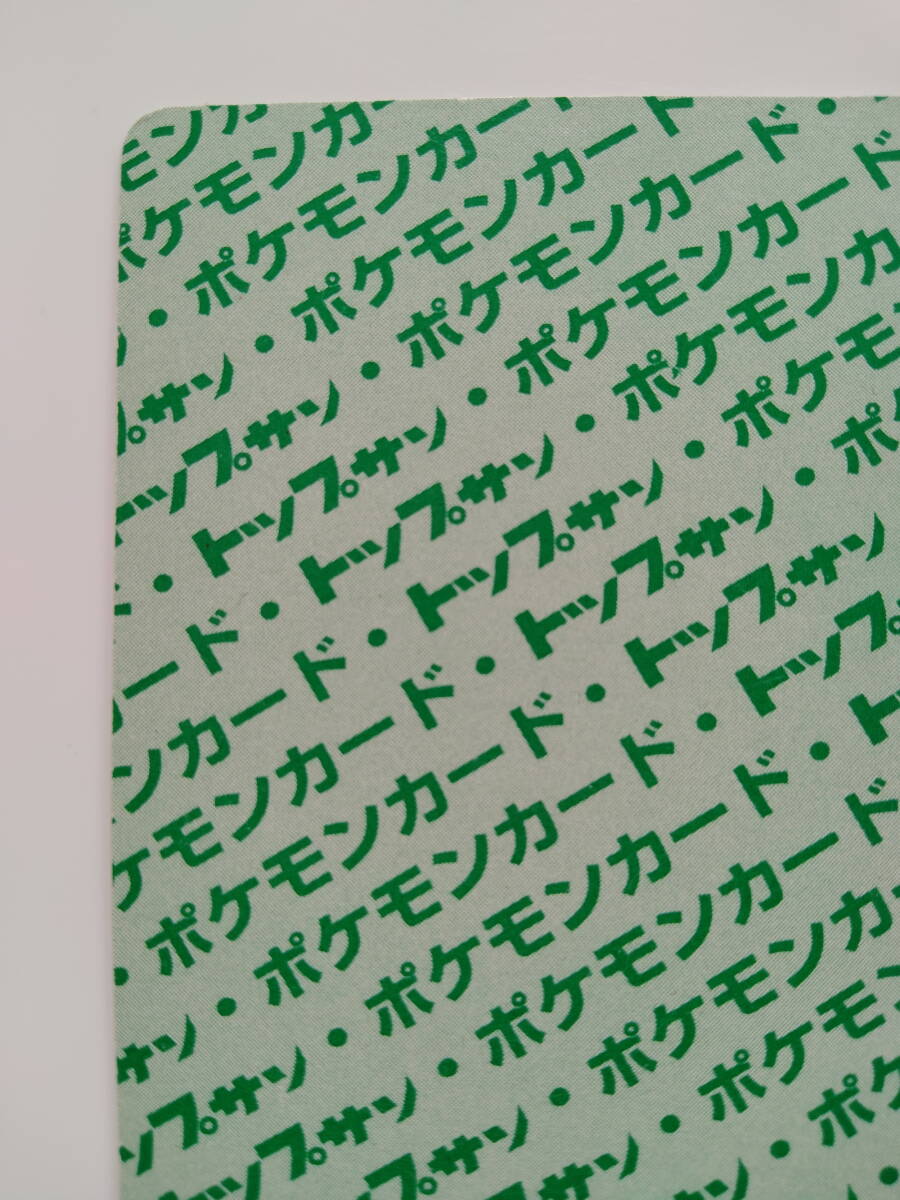 モンカ
ポケモンカー
ン・ポケモンカー
プサン・ポケモンカード
ップサン・ポケモンカード・
・トップサン・ポケモンカード
ード・トップサン・ポケモンカ
ンカード・トップサン・ポケモ
ケモンカード・トップサン・ポ
・ポケモンカード・トップサン
サン・ポケモンカード・トップ
ップサン・ポケモンカード・ト
トップサン・ポケモンカード
トップサン・ポケモンカ
サン・ポケモン
・ポケ